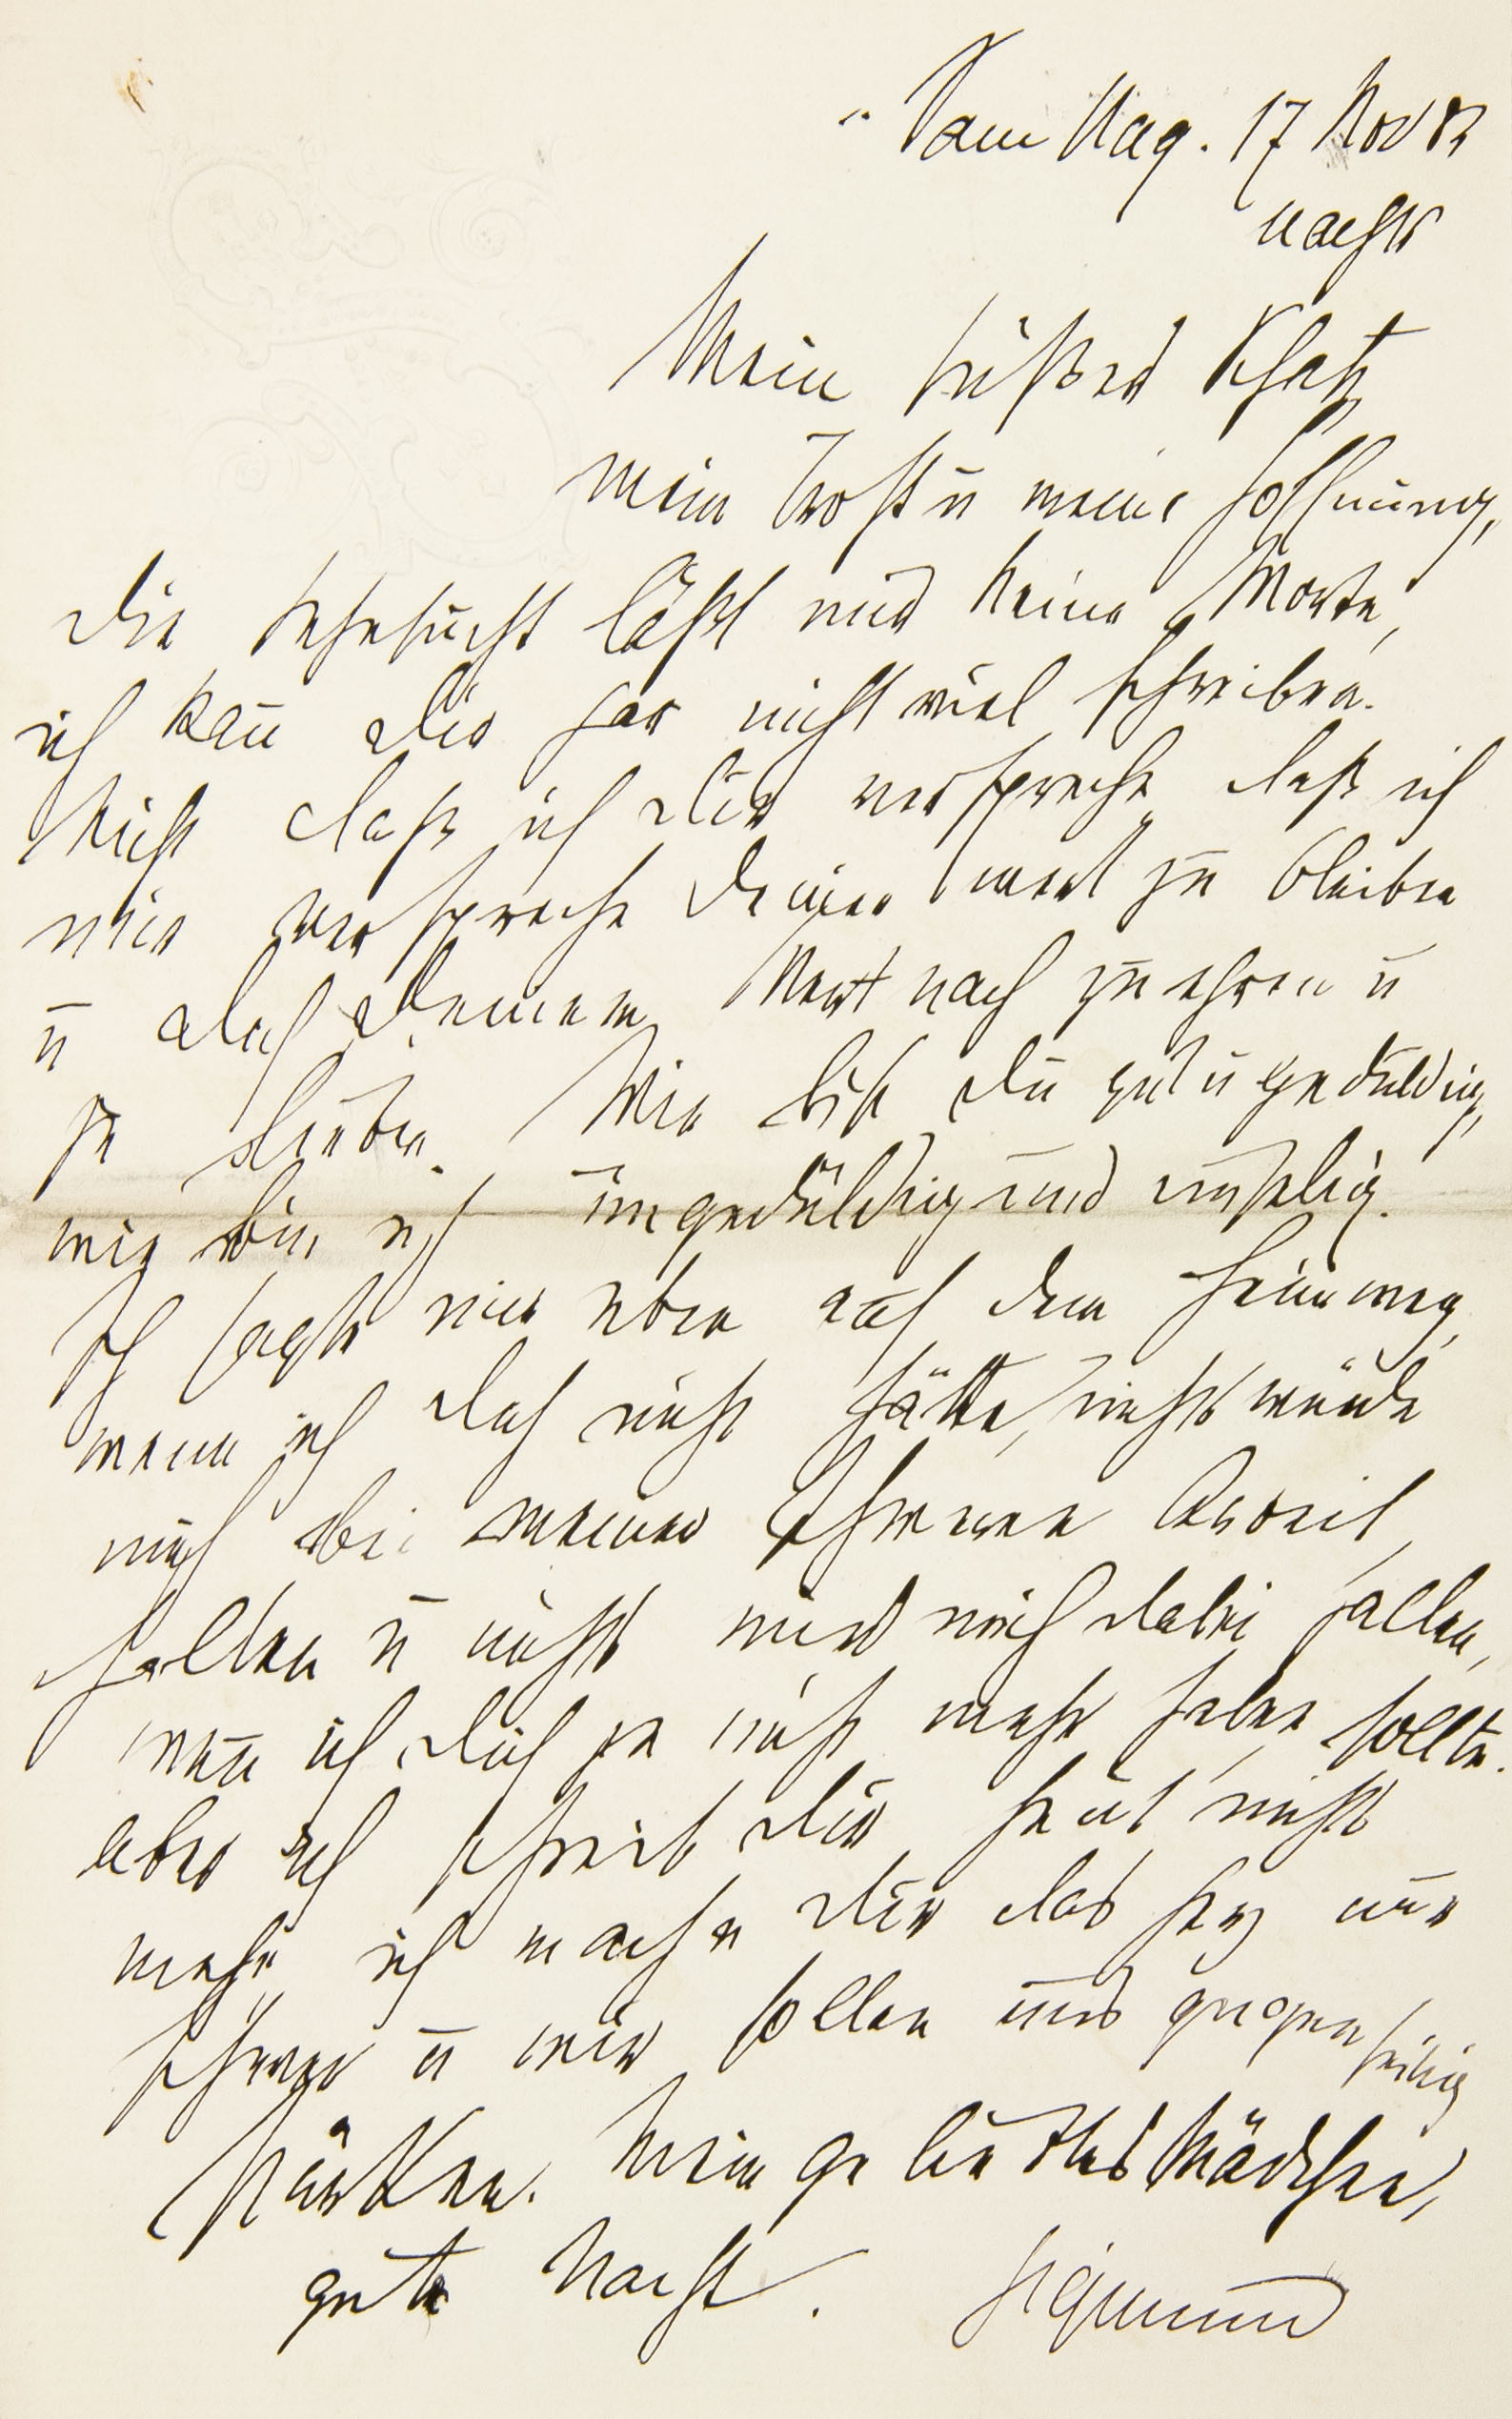 Samstag. 17 Nov 83
nachts
Mein süßer Schatz
mein Trost u meine Hoffnung,
die Sehnsucht läßt mir keine Worte,
ich kañ dir gar nicht viel schreiben.
Nicht daß ich dir verspreche, daß ich
mir verspreche Deiner wert zu bleiben
ū dich Deinem Wert nach zu ehren ū
zu lieben. Wie bist du gut ū geduldig,
wie bin ich ungeduldig und unselig.
Ich sagte mir eben auf dem Heimweg,
wenn ich dich nicht hätte, nichts würde
mich bei meiner schweren Arbeit
halten ū nichts wird mich dabei halten,
weñ ich dich je nicht mehr haben sollte.
aber ich schreib dir heut nichts
mehr, ich mache dir das Herz nur
schwer ū wir sollen uns gegenseitig
stärken. Mein geliebtes Mädchen,
gute Nacht. Sigmund